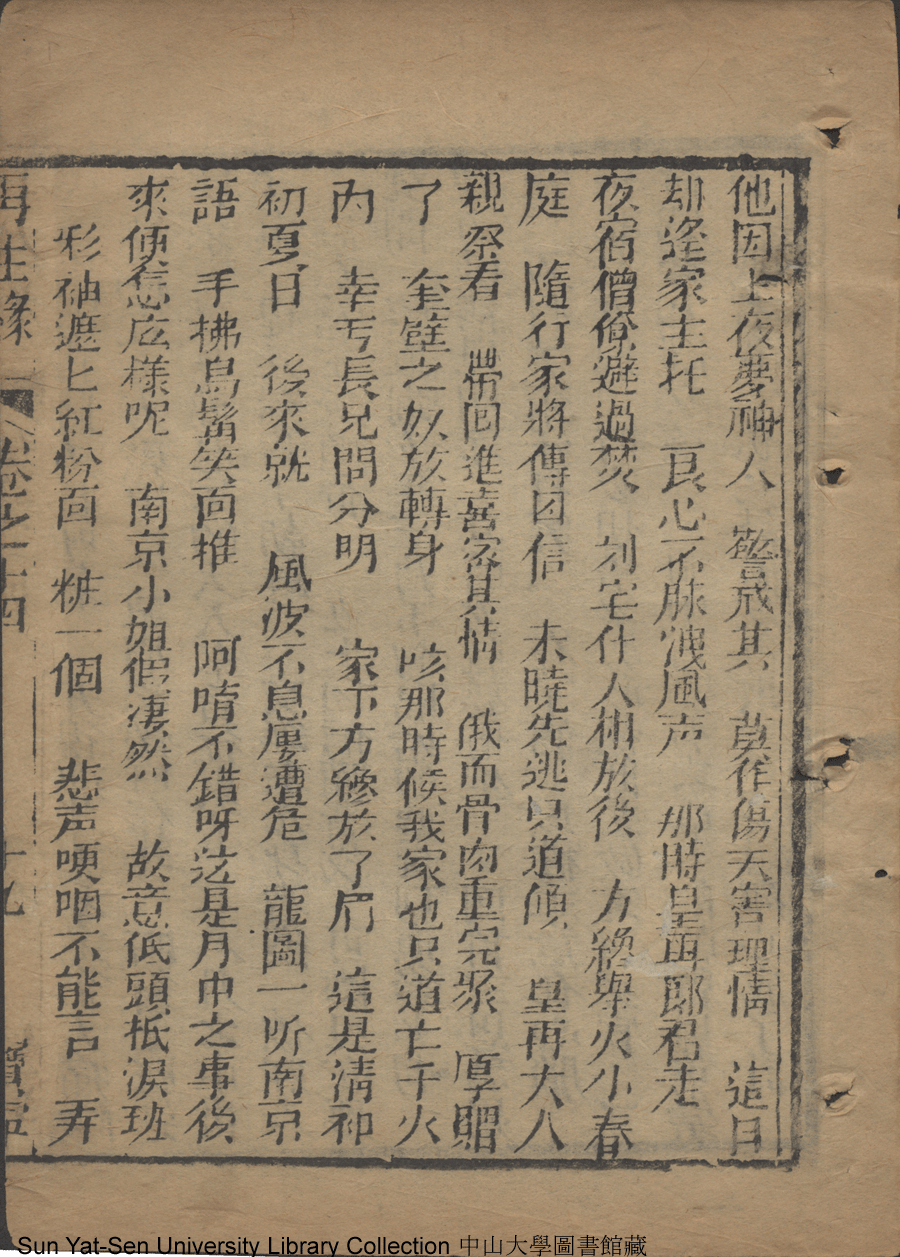 他因上夜夢神人　警戒其　莫作傷天害理情　這日
却逢家主托　良心不昧洩風声　那時皇再郎君走
夜宿僧僚避過焚　刘宅什人相放後　方纔舉火小春
庭　隨行家將傳因信　未曉先逃只道傾　皇再大人
親祭看　帶回進喜客其情　俄而骨肉重完聚　厚贈
了　奎璧之奴放轉身　咳那時候我家也只道亡于火
內　幸亏長兄問分明　家下方纔放了眉　這是清和
初夏日　後來就　風波不息屢遭危　龍圖一听南京
語　手拂烏髯笑回推　阿唷不錯呀這是月中之事後
來便怎庅樣呢　南京小姐假凄然　故意低頭抵淚班
彩袖遮匕紅粉面　粧一個　悲声哽咽不能言　弄
再生緣　卷之十四　十九　寶
Sun Yat-Sen University Library Collection 中山大學圖書館藏